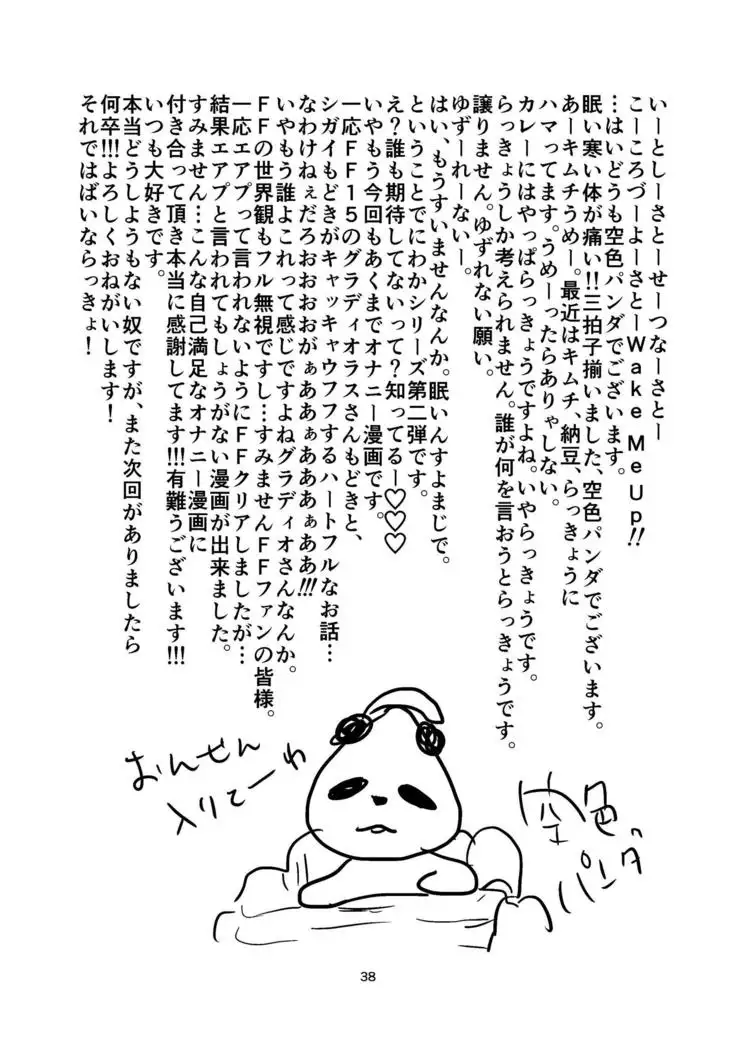 いーとしーさとーせーつなーさとー
こーころづーよーさとーWake Me Up!!
…はいどうも空色パンダでございます。
眠い寒い体が痛い!!三拍子揃いました、空色パンダでございます。
あーキムチうめー。最近はキムチ、納豆、らっきょうに
ハマってます。うめーったらありゃしない。
カレーにはやっぱらっきょうですよね。いやらっきょうです。
らっきょうしか考えられません。誰が何を言おうとらっきょうです。
譲りません。ゆずれない願い。
ゆずーれーないー。
はい、もうすいませんなんか。眠いんすよまじで。
ということでにわかシリーズ第二弾です。
え?誰も期待してないって?知ってるー♡♡♡
いやもう今回もあくまでオナニー漫画です。
一応FF15のグラディオラスさんもどきと、
シガイもどきがキャッキャウフフするハートフルなお話…
なわけねぇだろおおおおがぁああぁあああぁああ!!!
いやもう誰よこれって感じですよねグラディオさんなんか。
FFの世界観もフル無視ですし…すみませんFFファンの皆様。
一応エアプって言われないようにFFクリアしましたが…
結果エアプと言われてもしょうがない漫画が出来ました。
すみません…こんな自己満足なオナニー漫画に
付き合って頂き本当に感謝してます!!!有難うございます!!!
いつも大好きです。
本当どうしようもない奴ですが、また次回がありましたら
何卒!!!よろしくおねがいします!
それではばいならっきょ!
おんせん
入りてーわ
空色の
パンダ
38